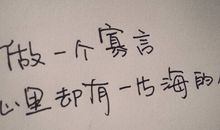 做一个寡言
心里却有一片海的